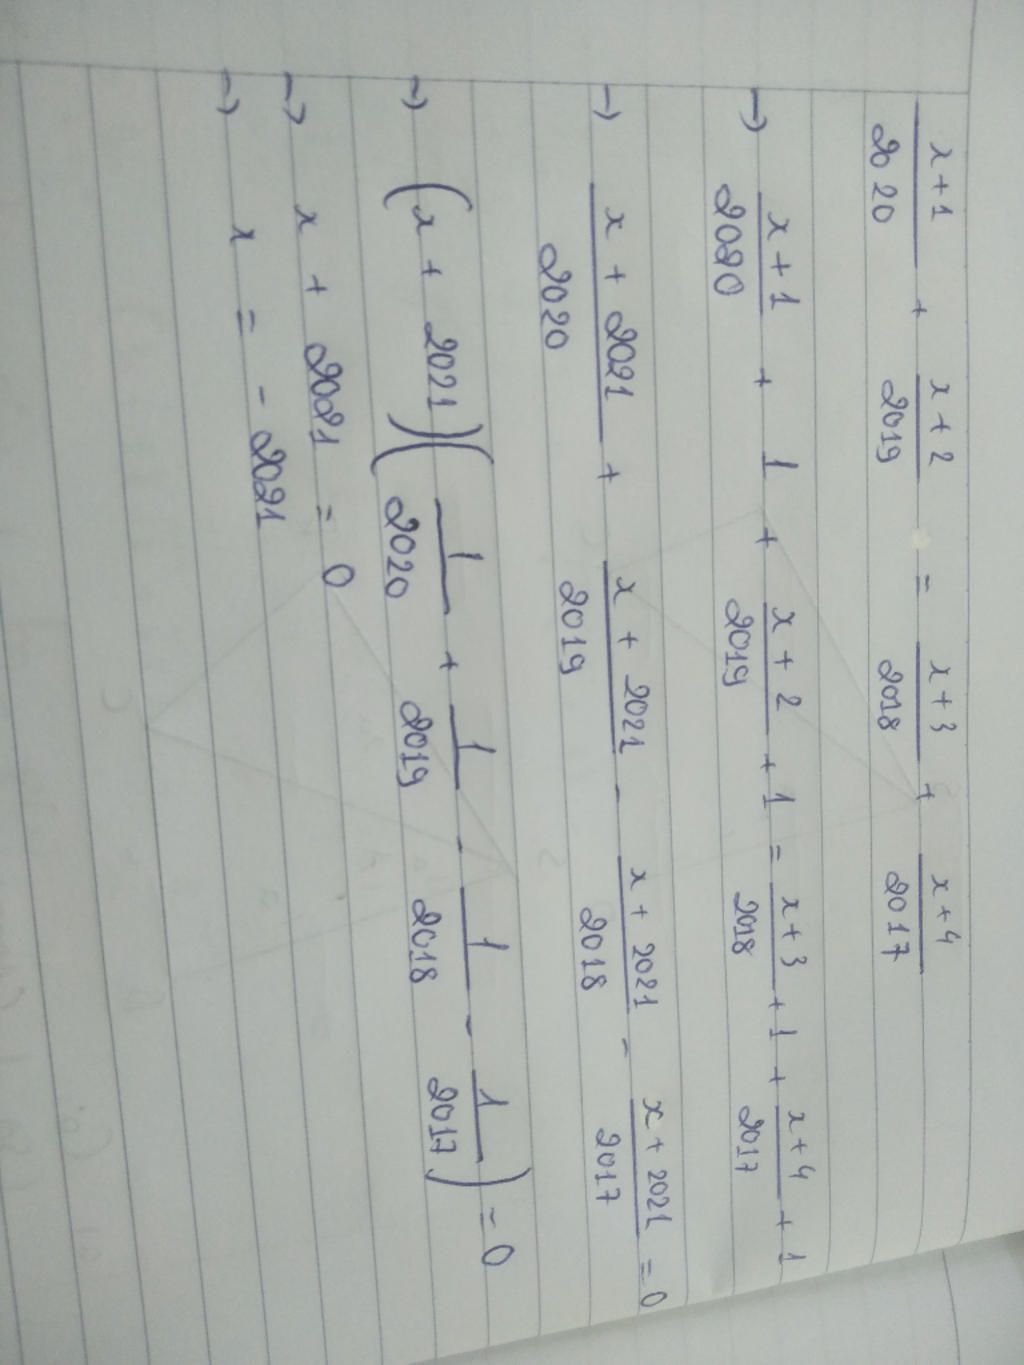 x+1/2020 + x+2/2019 = x+3/2018 + x+4/2017
→ x+1/2020 + 1 + x+2/2019 + 1 = x+3/2018 + 1 + x+4/2017 + 1
→ x+2021/2020 + x+2021/2019 - x+2021/2018 - x+2021/2017 = 0
→ (x+2021)(1/2020 + 1/2019 - 1/2018 - 1/2017) = 0
→ x + 2021 = 0
→ x = -2021